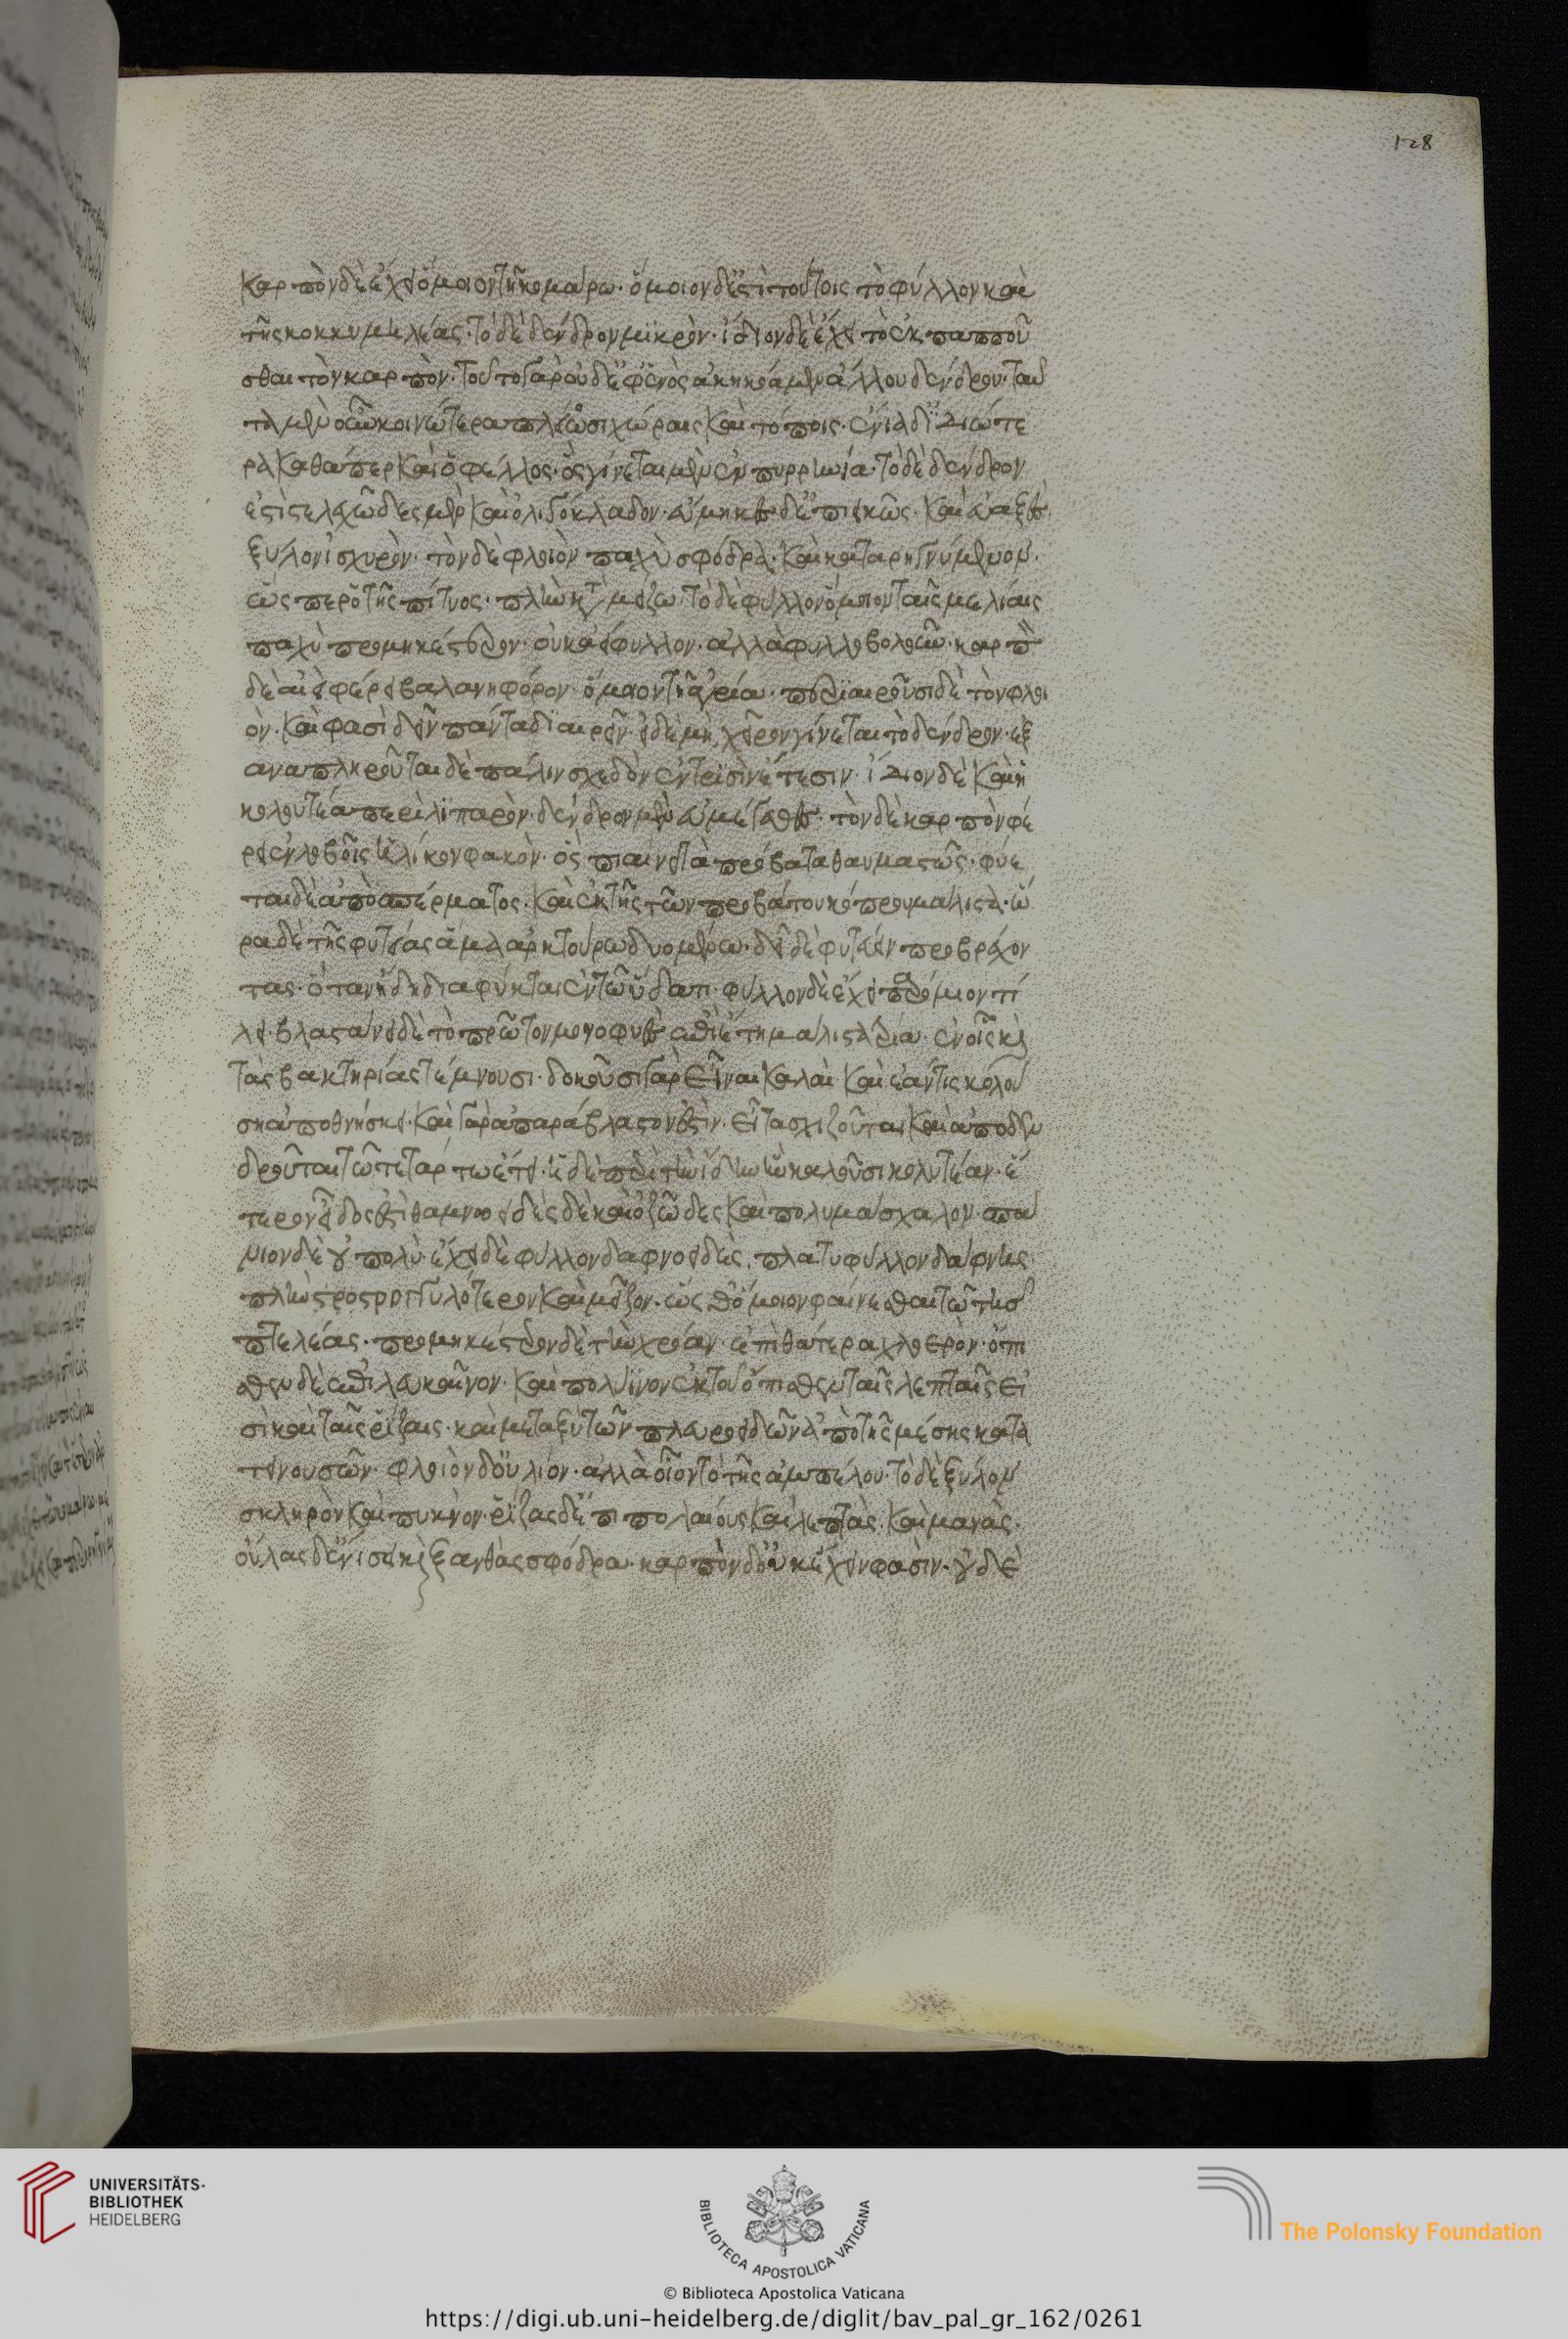 καρπὸν δὲ ἔχει ὅμοιον τῆ κομάρω· ὅμοιον δ' ἐστὶ τούτοις τὸ φύλλον καὶ
τῆς κοκκυμηλέας· τὸ δὲ δένδρον μϊκρὸν· ἴδιον δὲ ἔχει τὸ ἐκπαπποῦ
σθαι τὸν καρπὸν· τοῦτο γὰρ οὐδ' ἐφ' ἑνὸς ἀκηκόαμεν ἄλλου δένδρου· ταῦ
τα μὲν οὖν κοινώτερα πλείοσι χώραις καὶ τόποις· ἔνια δ' ἰδιώτε
ρα καθάπερ καὶ ὁ φελλος· ὃς γίνεται μὲν ἐν πυρρηνία· τὸ δὲ δένδρον
ἐστὶ στελεχῶδες μὲν καὶ ὀλιγόκλαδον· εὐμηκες δ' ἐπιεικῶς· καὶ εὐαξες
ξύλον ἰσχυρὸν· τὸν δὲ φλοιὸν παχὺ σφόδρα· καὶ καταρηγνύμενον·
ὥσπερ ὁ τῆς πίτυος· πλὴν κατὰ μείζω· τὸ δὲ φύλλον ὅμοιον ταῖς μελίαις
παχὺ προμηκέστερον· οὐκ ἀείφυλλον· ἀλλὰ φυλλοβολοῦν· καρπὸν
δὲ αἰεὶ φέρει βαλανηφόρον· ὅμοιον τῆ ἀρία· περιαιροῦσι δὲ τὸν φλοι
ὸν· καὶ φασὶ δεῖν πάντα διαιρεῖν· εἰ δὲ μὴ, χεῖρον γίνεται τὸ δένδρον· ἐξ
αναπληροῦται δὲ πάλιν σχεδὸν ἐν τρϊσὶν ἔτεσιν· ἴδιον δὲ καὶ ἡ
κολουτέα περὶ λϊπαρὸν· δένδρον μὲν εὐμέγεθες· τὸν δὲ καρπὸν φέ
ρει ἐν λοβοῖς ἡλίκον φακὸν· ὃς πιαίνει τὰ πρόβατα θαυμαστῶς· φύε
ται δὲ ἀπὸ σπέρματος· καὶ ἐκ τῆς τῶν προβάτου κόπρου μάλιστα· ὥ
ρα δὲ τῆς φυτείας ἅμα ἀρκτούρω δυομένω· δεῖ δὲ φυτεύειν προβρέχον
τας· ὅταν ἤδη διαφύηται ἐν τῶ ὕδατι· φύλλον δὲ ἔχει παρόμοιον τί
λει· βλαστάνει δὲ τὸ πρῶτον μονοφυὲς ἐπὶ ἔτη μάλιστα τρία· ἐν οἷς καὶ
τὰς βακτηρίας τέμνουσι· δοκοῦσι γὰρ εἶναι καλαὶ καὶ ἐάν τις κολού
ση ἀποθνήσκει· καὶ γὰρ ἀπαράβλαστον ἐστὶν· εἶτα σχίζονται καὶ ἀποδεν
δροῦται τῶ τετάρτω ἔτει· ἡ δὲ περὶ τὴν ἴδην ἣν καλοῦσι κολυτέαν· ἕ
τερον εἶδος ἐστὶ θαμνοειδὲς δὲ καὶ ὀζῶδες καὶ πολυμάσχαλον σπά
νιον δὲ οὐ πολὺ· ἔχει δὲ φύλλον δαφνοειδὲς, πλατυφύλλου δάφνης
πλὴν στρογγυλότερον καὶ μεῖζον· ὥσθ' ὅμοιον φαίνεσθαι τῶ τῆς
πτελέας· προμηκέστερον δὲ τὴν χρόαν· ἐπὶ θάτερα χλοερὸν· ὄπι
σθεν δὲ ἐπίλευκαῖνον· καὶ πολύϊνον ἐκ τοῦ ὄπισθεν ταῖς λεπταῖς εἰ
σὶ καὶ ταῖς ῥίζαις· καὶ μεταξὺ τῶν πλευροειδῶν ἀπὸ τῆς μέσης κατα
τεινουσῶν· φλοιὸν δ' οὐ λίον· ἀλλὰ οἷον τὸ τῆς ἀμπέλου· τὸ δὲ ξύλον
σκληρὸν καὶ πυκνὸν· ῥίζας δ' ἐπιπολαίους καὶ λεπτὰς· καὶ μανὰς·
οὔλας δ' ἐνίοτε καὶ ξανθὰς σφόδρα· καρπὸν δ' οὐκ ἔχειν φασὶν· οὐδὲ
128
UNIVERSITÄTS-
BIBLIOTHEK
HEIDELBERG
BIBLIOTECA APOSTOLICA VATICANA
The Polonsky Foundation
© Biblioteca Apostolica Vaticana
https://digi.ub.uni-heidelberg.de/diglit/bav_pal_gr_162/0261